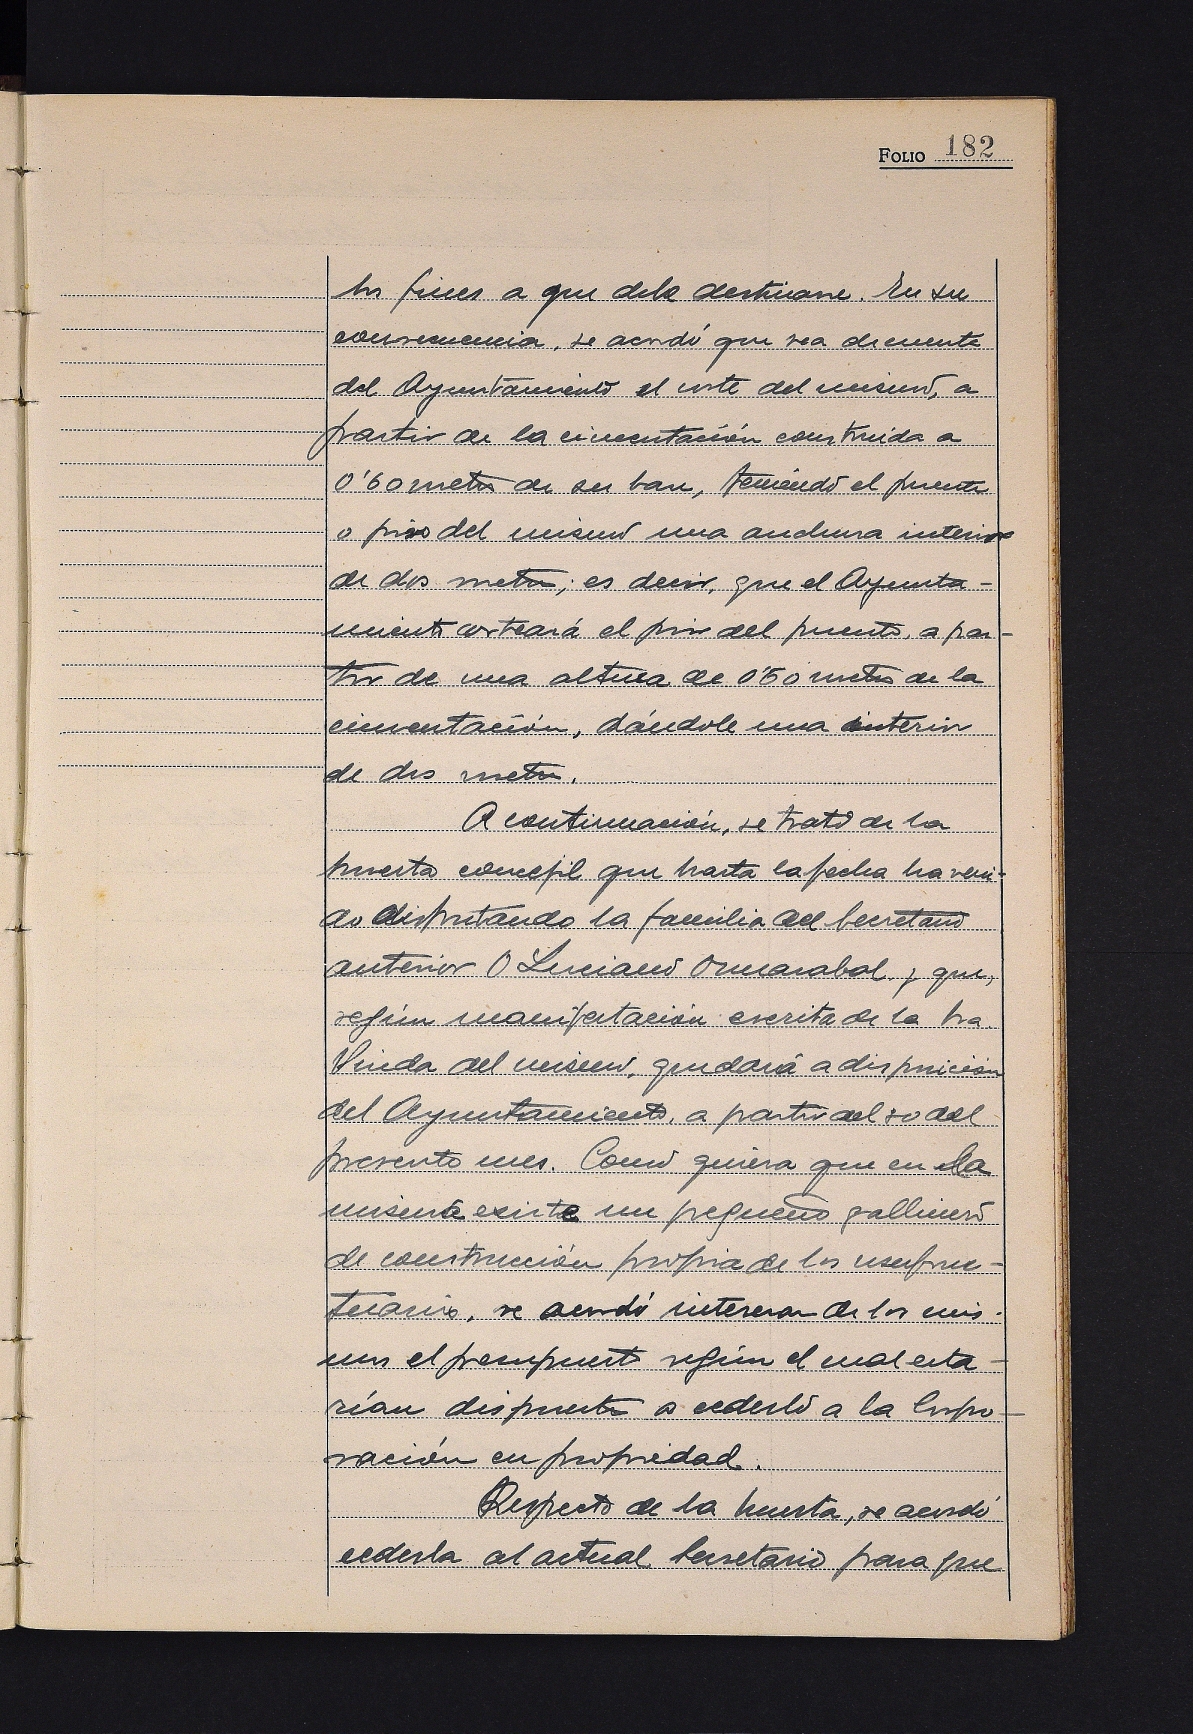 FOLIO 182
los fines a que debe destinarse. En su
consecuencia, se acordó que sea de cuenta
del Ayuntamiento el coste del mismo, a
partir de la cimentación construida a
0'60 metros de su base, teniendo el puente
o piso del mismo una anchura interior
de dos metros; es decir, que el Ayunta-
miento costeará el piso del puente, a par-
tir de una altura de 0'60 metros de la
cimentación, dándole una interior
de dos metros.
A continuación, se trató de la
huerta concejil que hasta la fecha ha veni-
do disfrutando la familia del Secretario
anterior D Luciano Ormazabal y que,
según manifestación escrita de la Sra.
Viuda del mismo, quedará a disposición
del Ayuntamiento, a partir del 30 del
presente mes. Como quiera que en la
misma existe un pequeño gallinero
de construcción propia de los usufruc-
tuarios, se acordó interesar de los mis-
mos el presupuesto según el cual esta-
rían dispuestos a cederlo a la Corpo-
ración en propiedad.
Respecto de la huerta, se acordó
cederla al actual Secretario para que